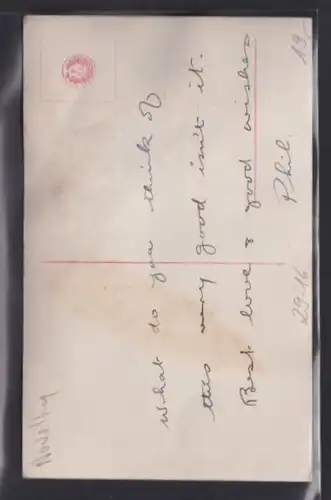 What do you think of
this very good isn't it.
Best love & good wishes
Phil.
29-16
19
Novelty